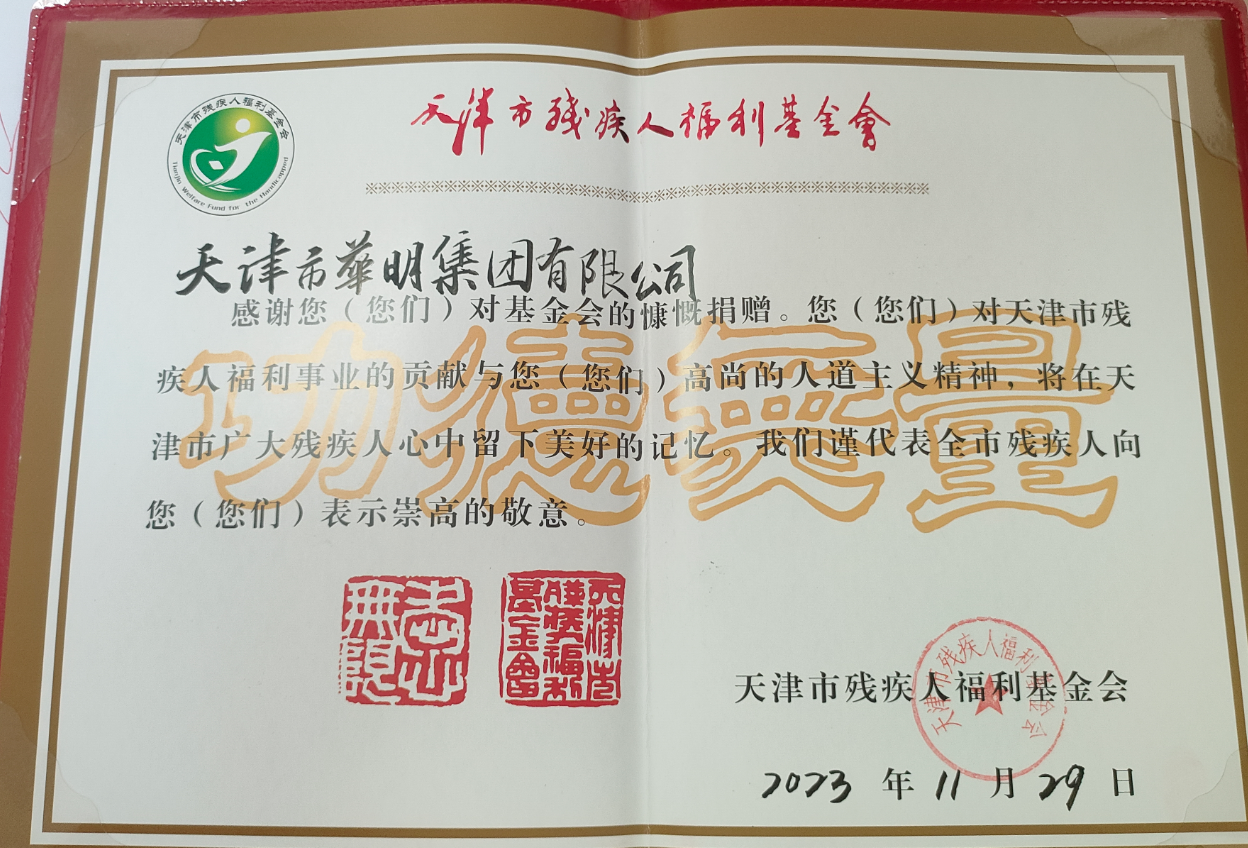 天津市残疾人福利基金會
天津市残疾人福利基金会
Tianjin Welfare Fund for the Handicapped
天津市華明集团有限公司
感谢您（您们）对基金会的慷慨捐赠。您（您们）对天津市残
疾人福利事业的贡献与您（您们）高尚的人道主义精神，将在天
津市广大残疾人心中留下美好的记忆。我们谨代表全市残疾人向
您（您们）表示崇高的敬意。
功德無量
天津市残疾人福利基金会
天津市残疾人福利基金会
2023 年 11 月 29 日